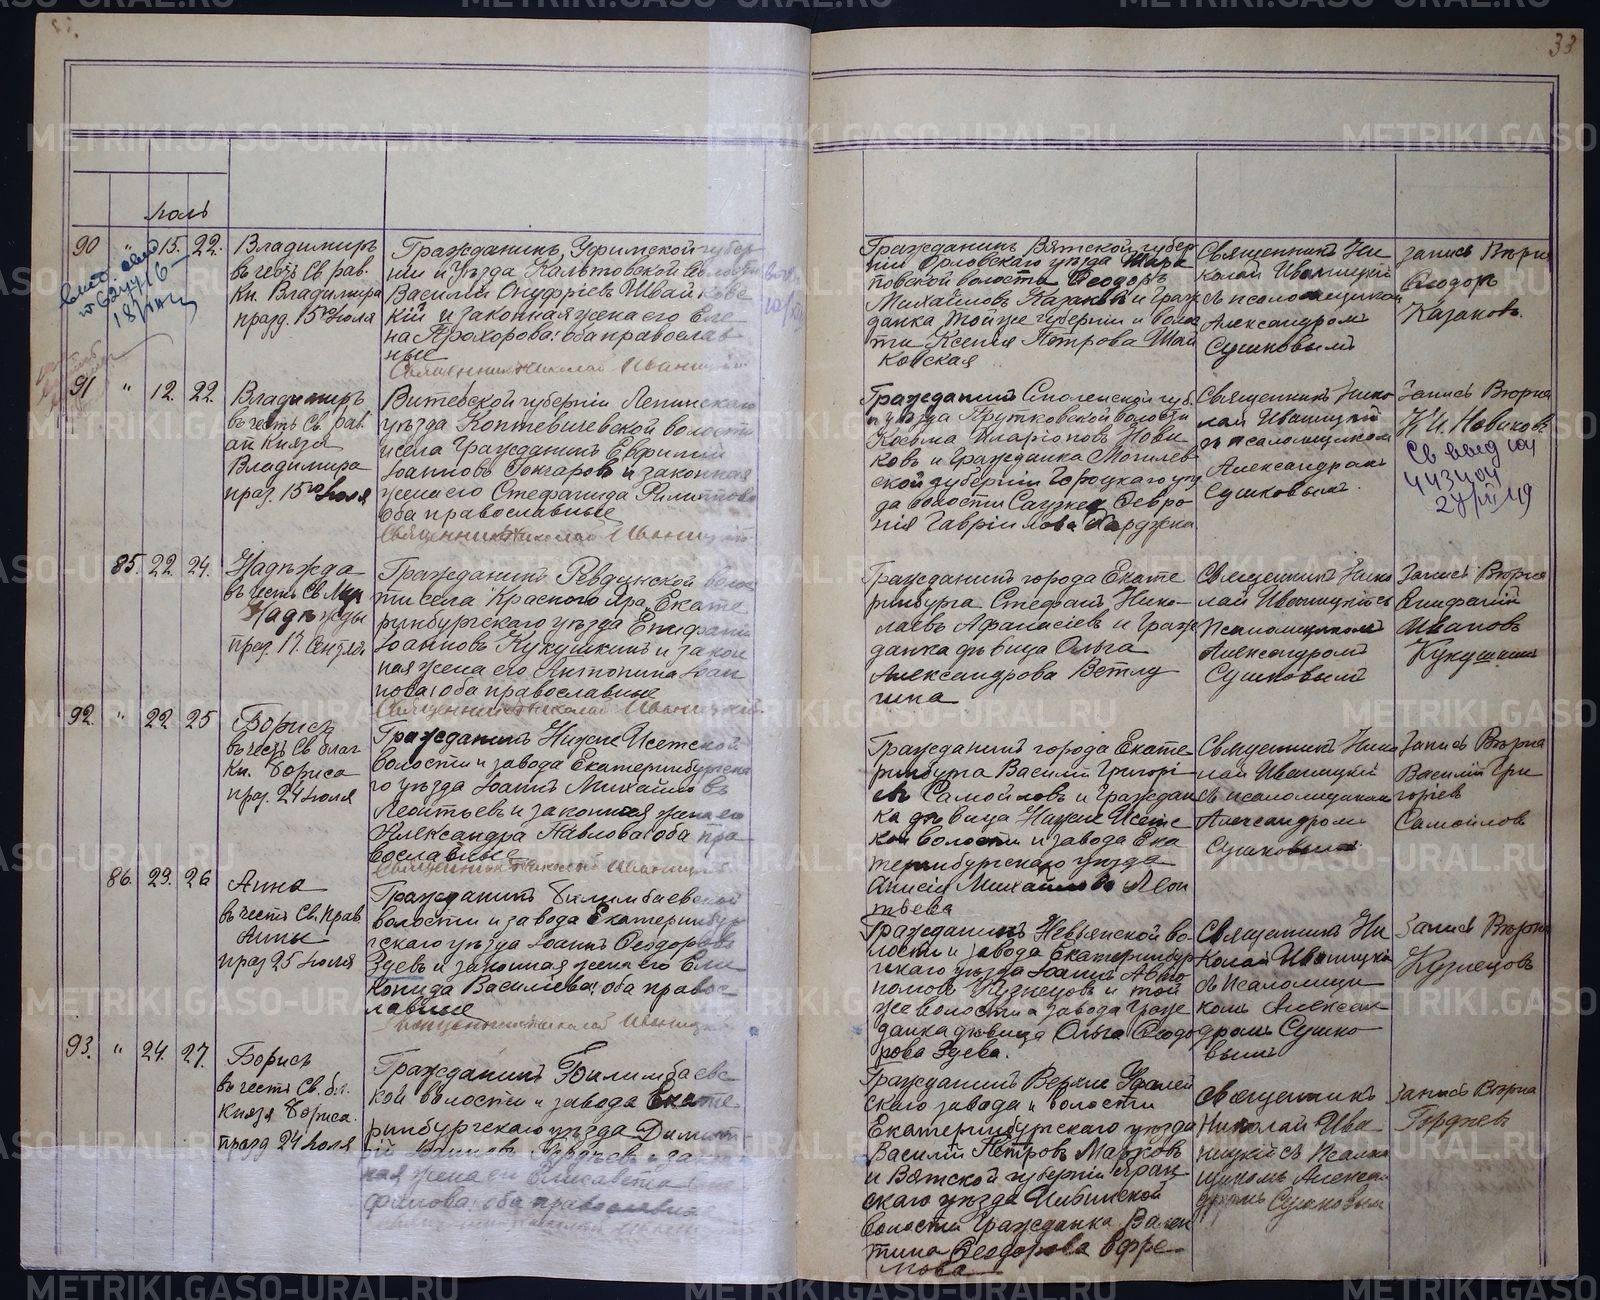 33
Іюль
90 " 15. 22.
Владимиръ
въ честь Св. рав.
Кн. Владимира
празд. 15го Іюля
Гражданинъ Уфимской губер
ніи и уѣзда Кальтовской волости
Василій Онуфріевъ Швайковс
кій и законная жена его Еле
на Прохорова: оба православ
ные
Священникъ Николай Иваницкій
Гражданинъ Вятской губер
ніи Орловскаго уѣзда
повской волости Ѳеодоръ
Михайловъ Казаковъ и граж
данка той же губерніи и волос
ти Ксенія Петрова Швай
ковская
Священникъ Ни
колай Иваницкій
съ псаломщикомъ
Александромъ
Сушковымъ
запись вѣрна
Ѳеодоръ
Казаковъ.
91 " 12. 22.
Владимиръ
въ честь Св. рав.
ап. Князя
Владимира
праз. 15го Іюля
Витебской губерніи Лепинскаго
уѣзда Коптевичевской волости
и села Гражданинъ Евфимій
Іоанновъ Гончаровъ и законная
жена его Стефанида Филиппова
оба православные
Священникъ Николай Иваницкій
Гражданинъ Смоленской губ.
и уѣзда Прутковской волости
Косьма Иларіоновъ Нови
ковъ и гражданка Могилев
ской губерніи Городкаго уѣз
да волости Февро
нія Гавріилова
Священникъ Нико
лай Иваницкій
съ псаломщикомъ
Александромъ
Сушковымъ.
Запись вѣрна
К. И. Новиковъ
85. 22. 24.
Надежда
въ честь Св. Муч
Надежды
праз. 17. Сентяб.
Гражданинъ Ревдинской волос
ти села Краснаго Яра Екате
ринбургскаго уѣзда Епифаній
Іоанновъ Кукушкинъ и закон
ная жена его Антонина Іоан
нова: оба православные
Священникъ Николай Иваницкій
Гражданинъ города Екате
ринбурга Стефанъ Нико-
лаевъ Афанасіевъ и граж
данка дѣвица Ольга
Александрова Ветлу
гина
Священникъ Нико
лай Иваницкій съ
Псаломщикомъ
Александромъ
Сушковымъ
Запись вѣрна
Епифаній
Ивановъ
Кукушкинъ
92. " 22 25
Борисъ
въ честь Св. благ
Кн. Бориса
праз. 24 Іюля
Гражданинъ Нижне Исетской
волости и завода Екатеринбургска
го уѣзда Іоаннъ Михайловъ
Леонтьевъ и законная жена его
Александра Павлова: оба пра
вославные
Священникъ Николай Иваницкій
Гражданинъ города Екате
ринбурга Василій Григорі
евъ Самойловъ и граждан
ка дѣвица Нижне Исетс
кой волости и завода Ека
теринбургскаго уѣзда
Анисія Михайлова Леон
тьева
Священникъ Нико
лай Иваницкій
съ псаломщикомъ
Александромъ
Сушковымъ
Запись вѣрна
Василій Гри
горіев
Самойлов
86. 23. 26
Анна
въ честь Св. Прав
Анны
праз 25 Іюля
Гражданинъ Билимбаевской
волости и завода Екатеринбур
гскаго уѣзда Іоаннъ Ѳеодоровъ
Здевъ и законная жена его Ели
конида Василіева: оба правос
лавные
Священникъ Николай Иваницкій
Гражданинъ Невьянской во
лости и завода Екатеринбур
гскаго уѣзда Іоаннъ Авто
номовъ Кузнецовъ и той
же волости и завода граж
данка дѣвица Ольга Ѳеодо
рова Здева.
Священникъ Ни
колай Иваницкій
съ псаломщи
комъ Алексан
дромъ Сушко
вымъ
Запись вѣрна
Кузнецовъ
93. " 24. 27.
Борисъ
въ честь Св. бл.
Князя Бориса.
празд 24 Іюля
Гражданинъ Билимбаевс
кой волости и завода Екате
ринбургскаго уѣзда Димит
рій
ная жена его Елисавета
филова: оба православные
Гражданинъ Верхне Уфалей
скаго завода и волости
Екатеринбургскаго уѣзда
Василій Петровъ Марковъ
и Вятской губерніи Яран
скаго уѣзда
волости Гражданка Вален
тина Ѳеодорова Ефре-
мова
Священникъ
Николай Ива
ницкій съ Псалом
щикомъ Алексан
дромъ Сушковым
Запись вѣрна
Гордѣев
METRIKI.GASO-URAL.RU